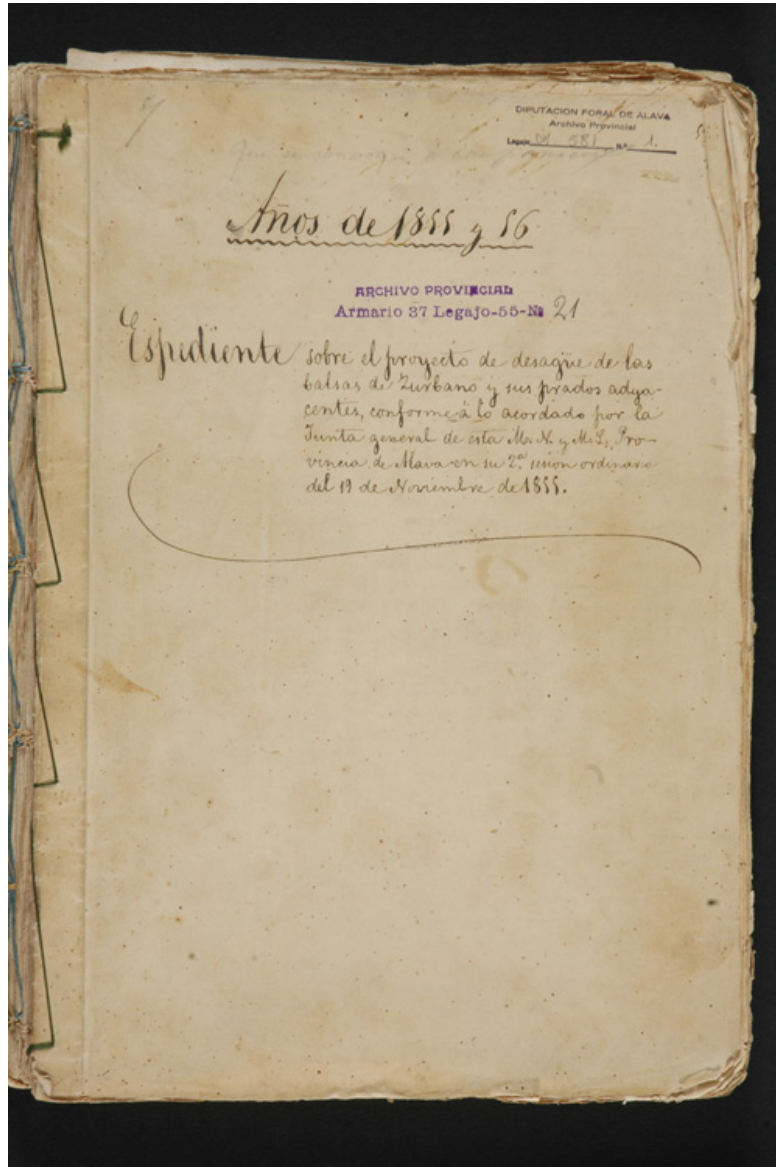 DIPUTACION FORAL DE ALAVA
Archivo Provincial
Legajo DH 581 N.º 1.
Años de 1855 y 56
ARCHIVO PROVINCIAL
Armario 37 Legajo-55-Nº 21
Espediente sobre el proyecto de desagüe de las
balsas de Zurbano y sus prados adya-
centes, conforme á lo acordado por la
Junta general de esta M. N. y M. L. Pro-
vincia de Alava en su 2ª sesion ordinaria
del 19 de Noviembre de 1855.